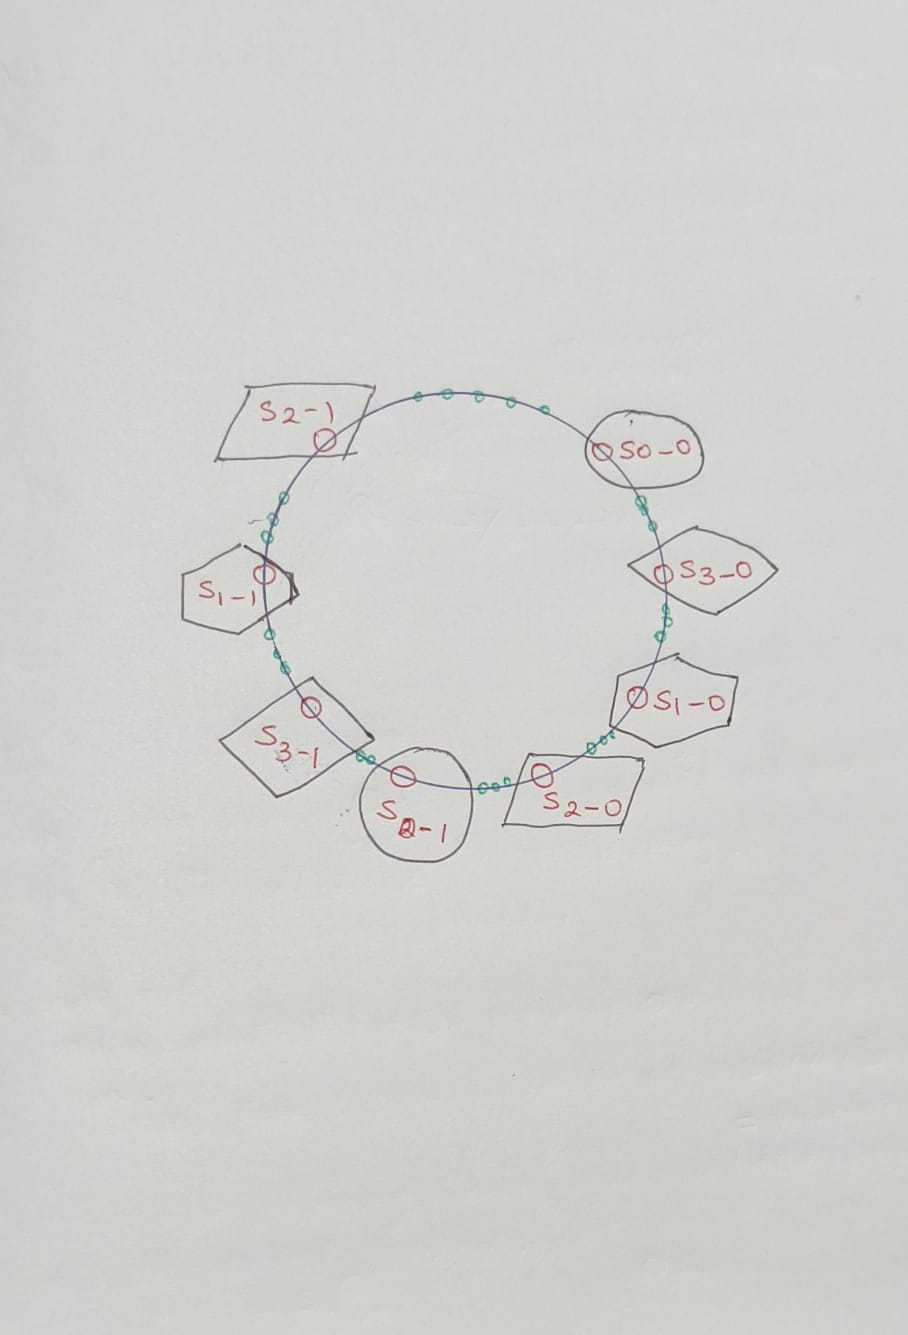 S2-1
S0-0
S3-0
S1-1
S1-0
S3-1
S2-0